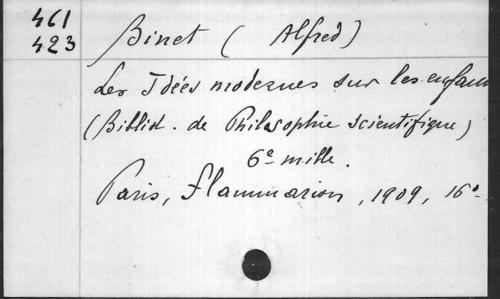 461
423
Binet (Alfred)
Les Idées modernes sur les enfan
(Bibliot. de Philosophie scientifique)
6e mille.
Paris, Flammarion, 1909, 16°